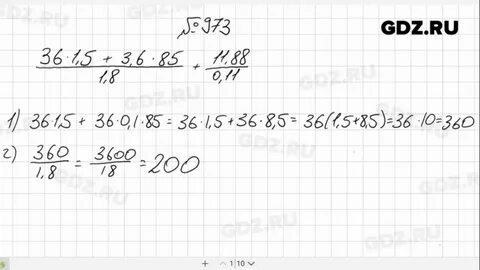 №973
GDZ.RU
36·1,5 + 3,6·85 / 1,8 + 11,88 / 0,11
1) 36·1,5 + 36·0,1·85 = 36·1,5+36·8,5 = 36(1,5+8,5)=36·10=360
2) 360/1,8 = 3600/18 = 200
+ 1 | 10